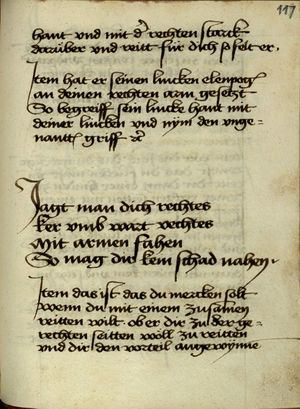 117
hant vnd mit dr̄ rechten starck
darüber vnd reitt für dich so felt er.
Item hat er seinen lincken elenpoḡ
an deinen rechten arm gesetzt
So begreiff sein lincke hant mit
deiner lincken vnd nym den vnge=
nantt̄ griff
Jagt man dich rechtes
ker vmb wart vechtes
Mit armen fahen
So mag dir kein schad nahen.
Item das ist das du mercken solt
wenn du mit einem zusamen
reitten wilt ob er dir zu der ge=
rechten seitten wöll zu reitten
vnd dir den vorteil angewynne